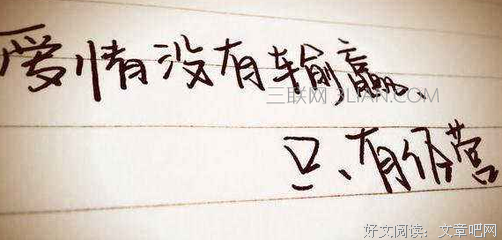 爱情没有输赢、
三联网 3LIAN.COM
只有经营
好文阅读：文章吧网